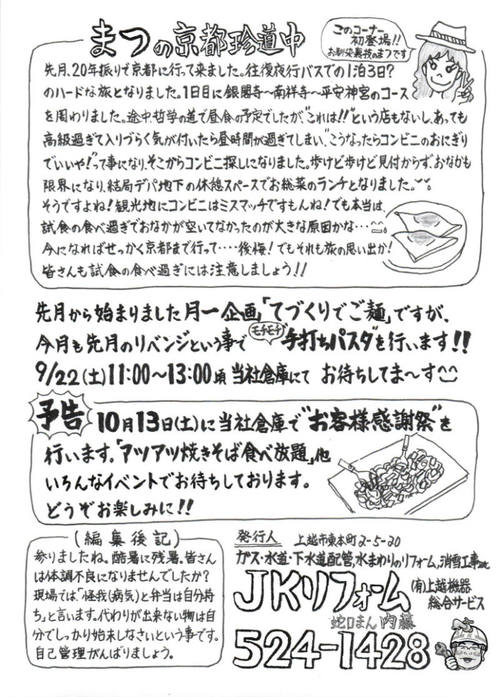 まつの京都珍道中
このコーナー
初登場!!
お馴染裏技のまつです
先月、20年振りで京都に行って来ました。往復夜行バスでの1泊3日?
のハードな旅となりました。1日目に銀閣寺〜南祥寺〜平安神宮のコース
を周わりました。途中哲学の道で昼食の予定でしたが“これは!!”という店もないし、あっても
高級過ぎて入りづらく気が付いたら昼時間が過ぎてしまい、“こうなったらコンビニのおにぎり
でいいや!”って事になり、そこからコンビニ探しになりました。歩けど歩けど見付からず、おなかも
限界になり、結局デパ地下の休憩スペースでお総菜のランチとなりました。
そうですよね!観光地にコンビニはミスマッチですもんね!でも本当は、
試食の食べ過ぎでおなかが空いてなかったのが大きな原因かな…
今になればせっかく京都まで行って‥‥後悔!でもそれも旅の思い出か!
皆さんも試食の食べ過ぎには注意しましょう!!
先月から始まりました月一企画「てづくりでご麺」ですが、
今月も先月のリベンジという事で モチモチ“手打ちパスタ”を行います!!
9/22(土)11:00〜13:00頃 当社倉庫にて お待ちしてま〜す^^
予告 10月13日(土)に当社倉庫で“お客様感謝祭”を
行います。「アツアツ焼きそば食べ放題」他
いろんなイベントでお待ちしております。
どうぞお楽しみに!!
(編集後記)
参りましたね。酷暑に残暑。皆さん
は体調不良になりませんでしたか?
現場では「怪我(病気)と弁当は自分持
ち」と言います。代わりが出来ない物は自
分でしっかり始末しなさいという事です。
自己管理がんばりましょう。
発行人 上越市東本町2-5-20
ガス・水道・下水道配管、水まわりのリフォーム、消雪工事etc
JKリフォーム (有)上越機器
総合サービス
蛇口まん 内藤
524-1428